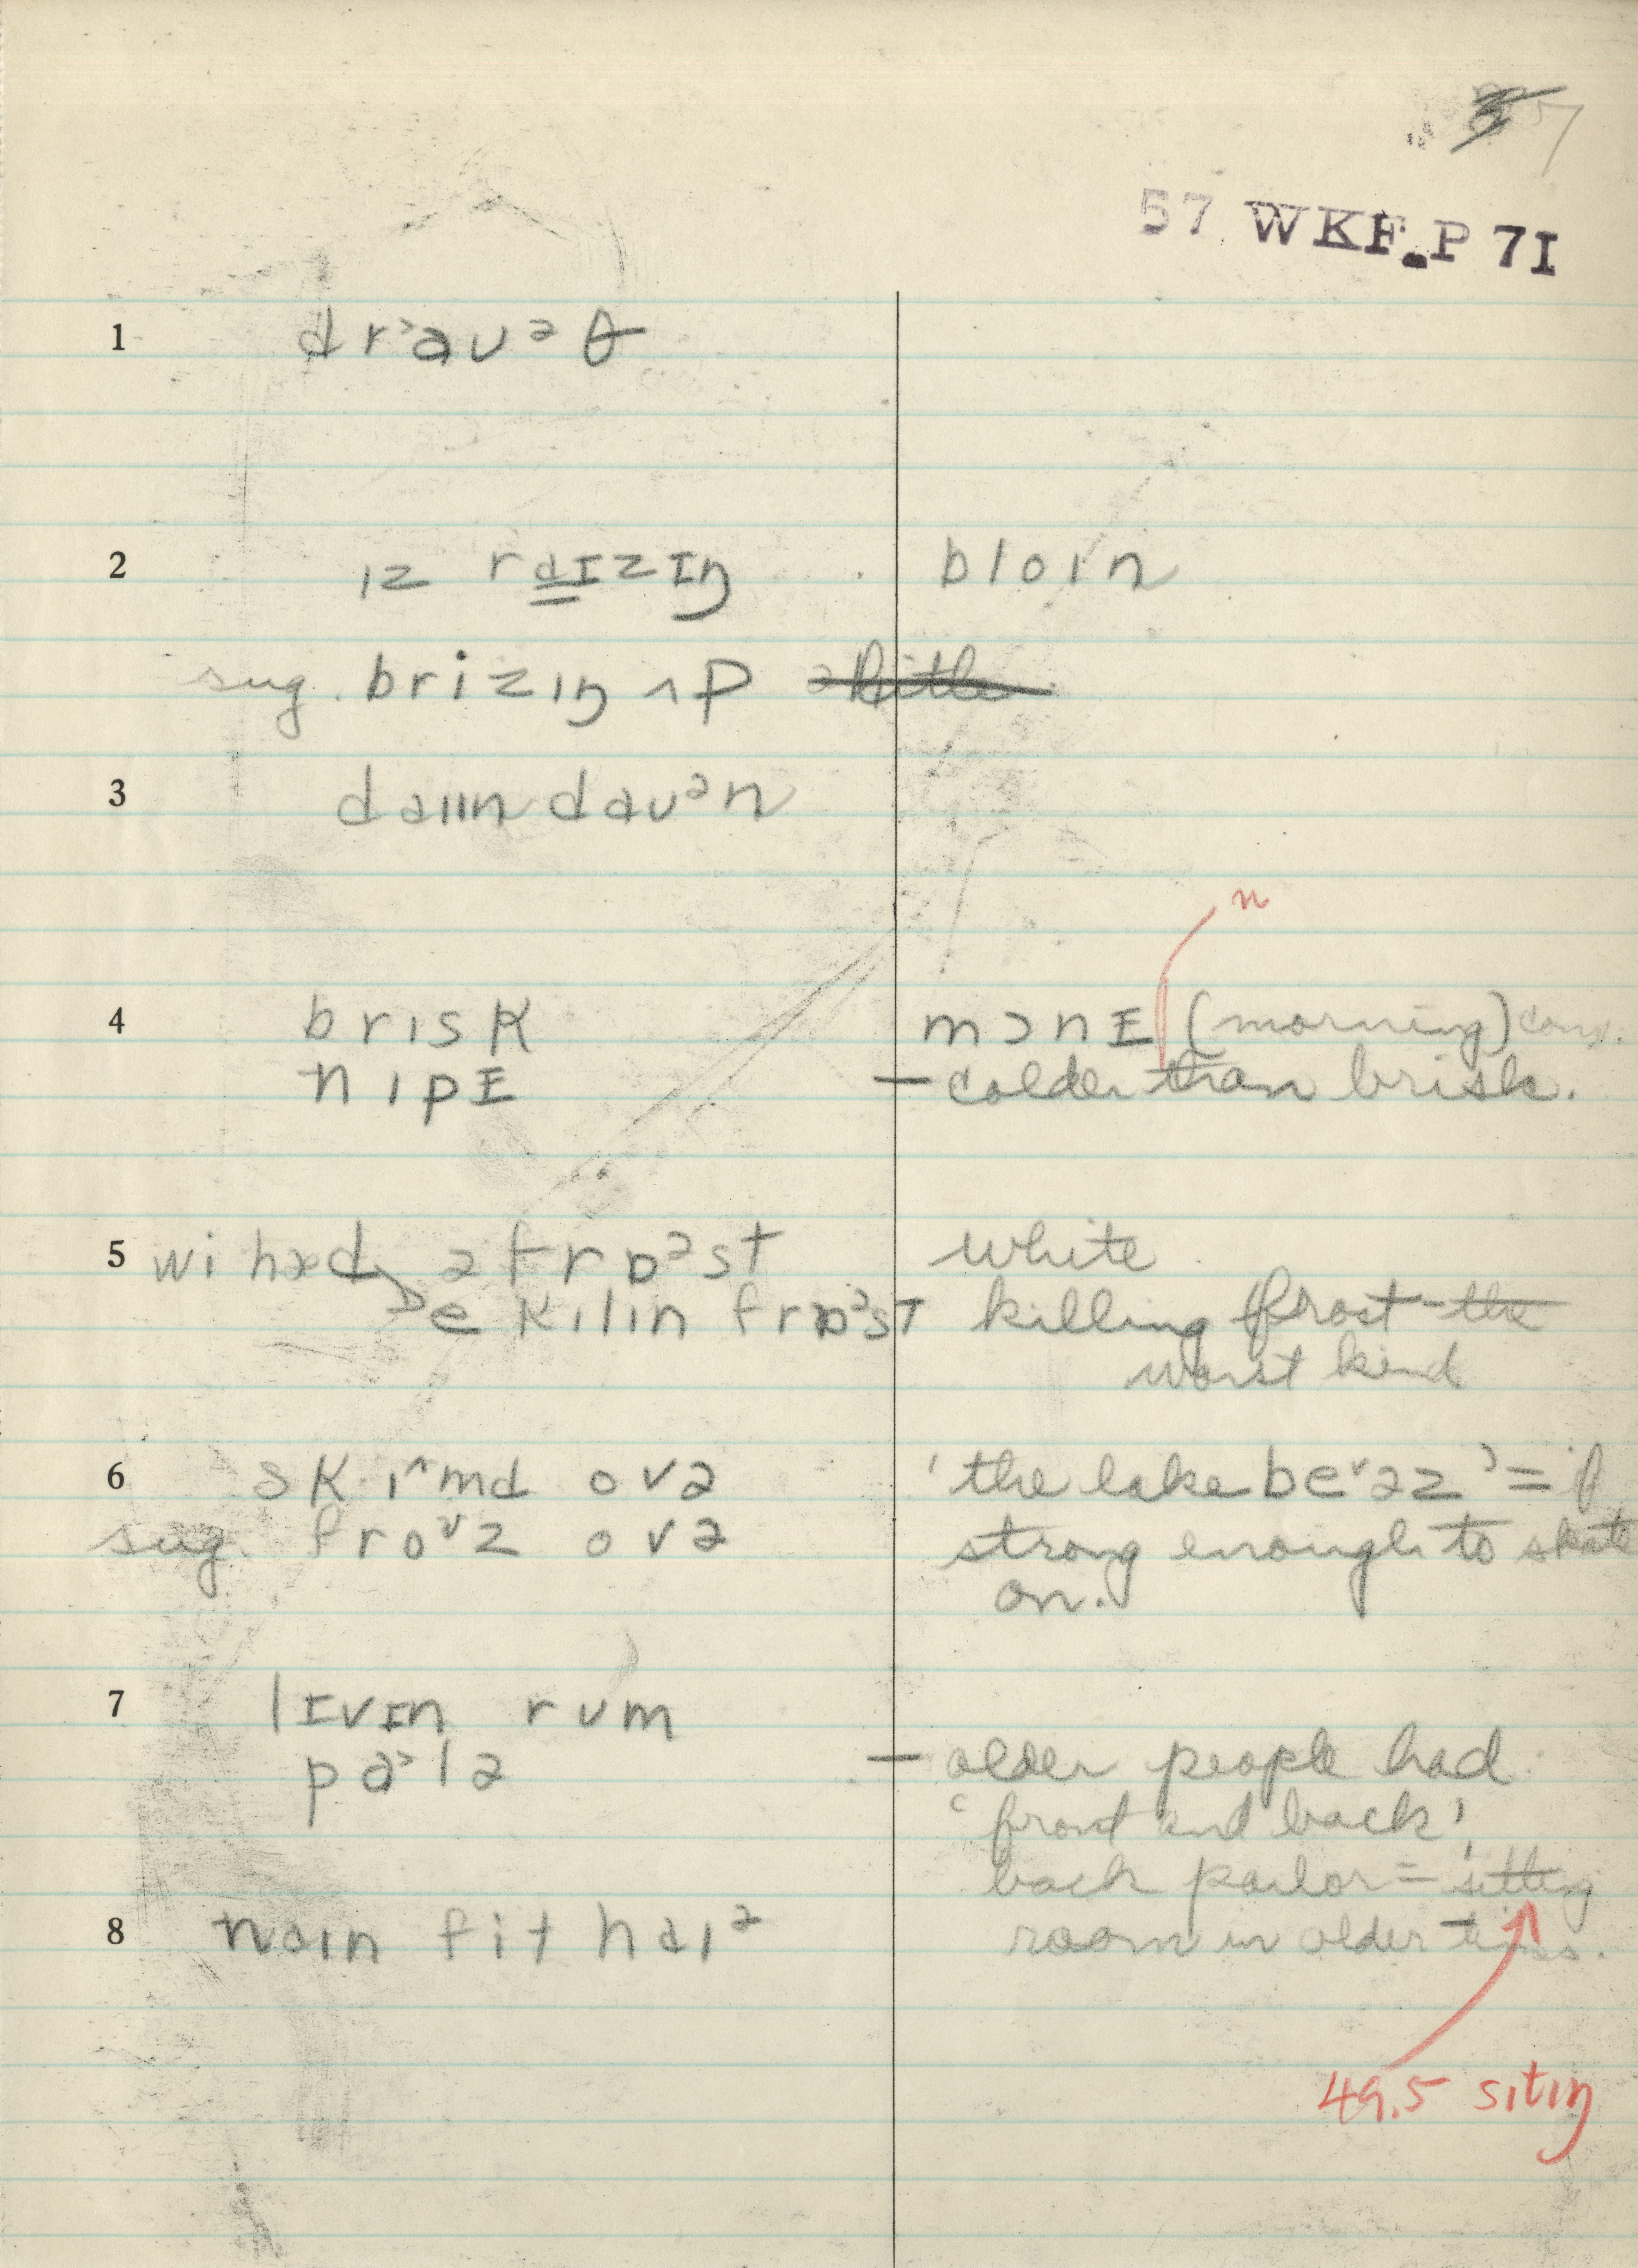 7
57 WKF.P 7I
1 dr˃aʊᵊθ
2 ɪz raɪzɪŋ bloɪn
sug. brizɪŋ ʌp
3 daɪɪn daʊᵊn
n
4 brɪsk mɔnɪ (morning) conv.
nɪpɪ — colder than brisk.
5 wi hæd ə frɒᵊst white
e kɪlɪn frɒᵊst killing frost - the
worst kind
6 skɪ^md ovə 'the lake be˅əz' = if
sug. fro˅z ovə strong enough to skate
on.
7 lɪvɪn rum
pa˃lə — older people had
'front and back',
back parlor = 'sitting
8 naɪn fit haɪᵊ room in older times.
49.5 sɪtɪŋ